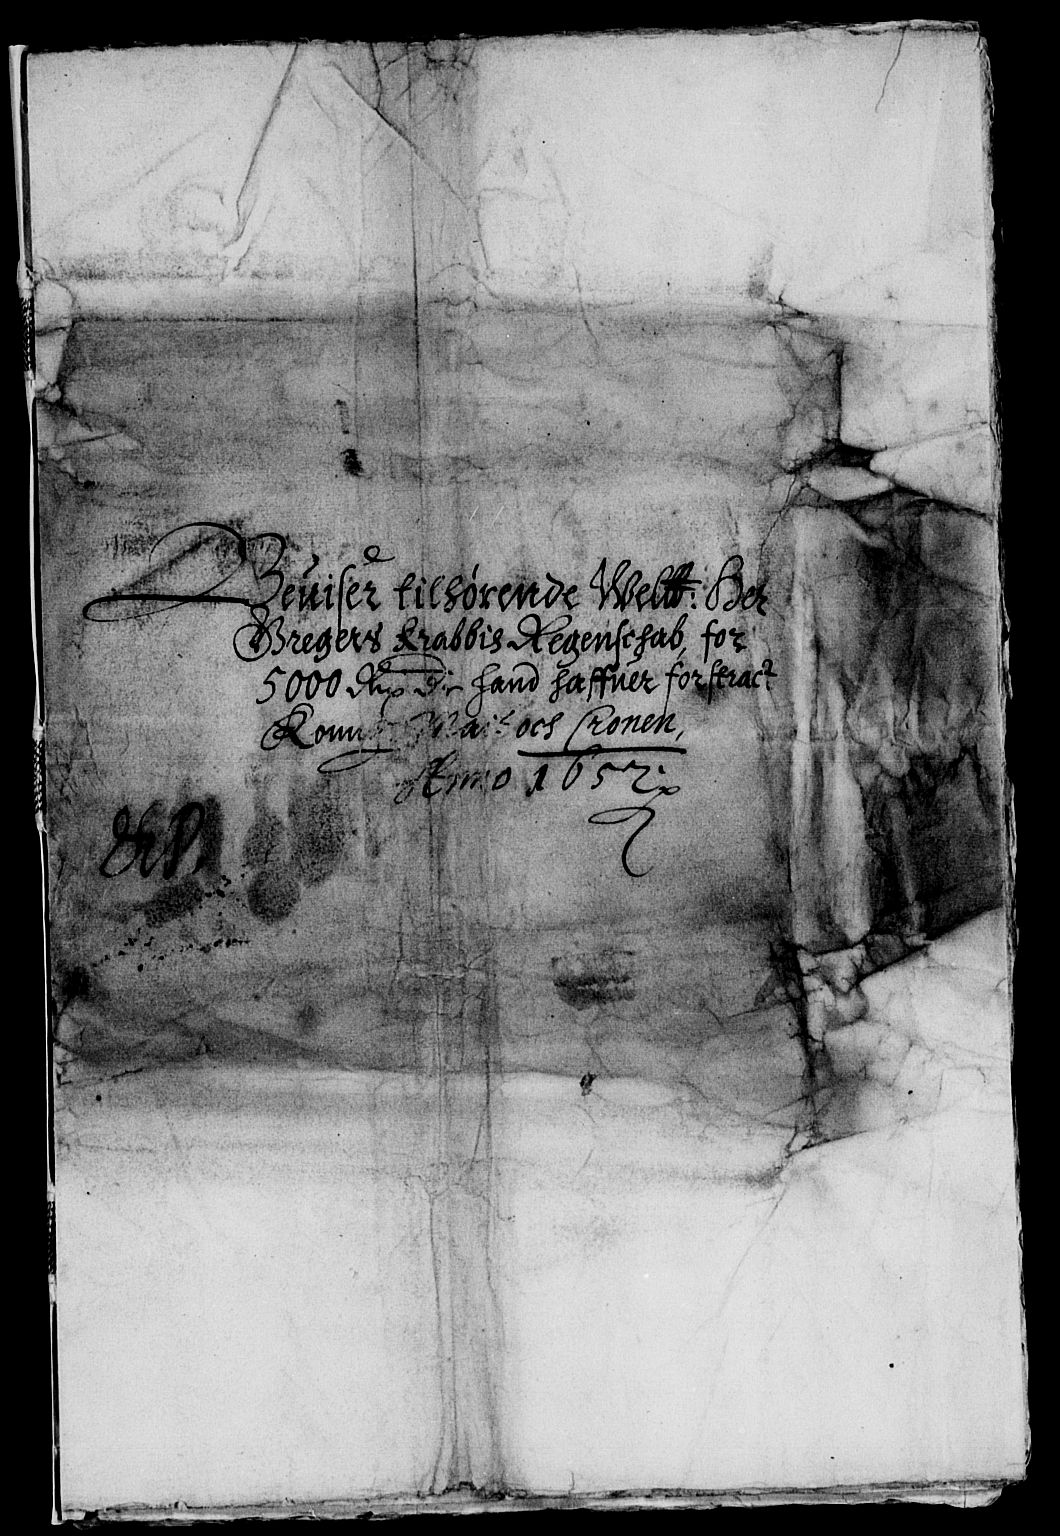 Beuiser tilhörende Welbt: Her
Gregers Krabbis Regenschab, for
5000 Rdr. hand haffuer forstract
Konn: May:t och Cronen,
Anno 1657: